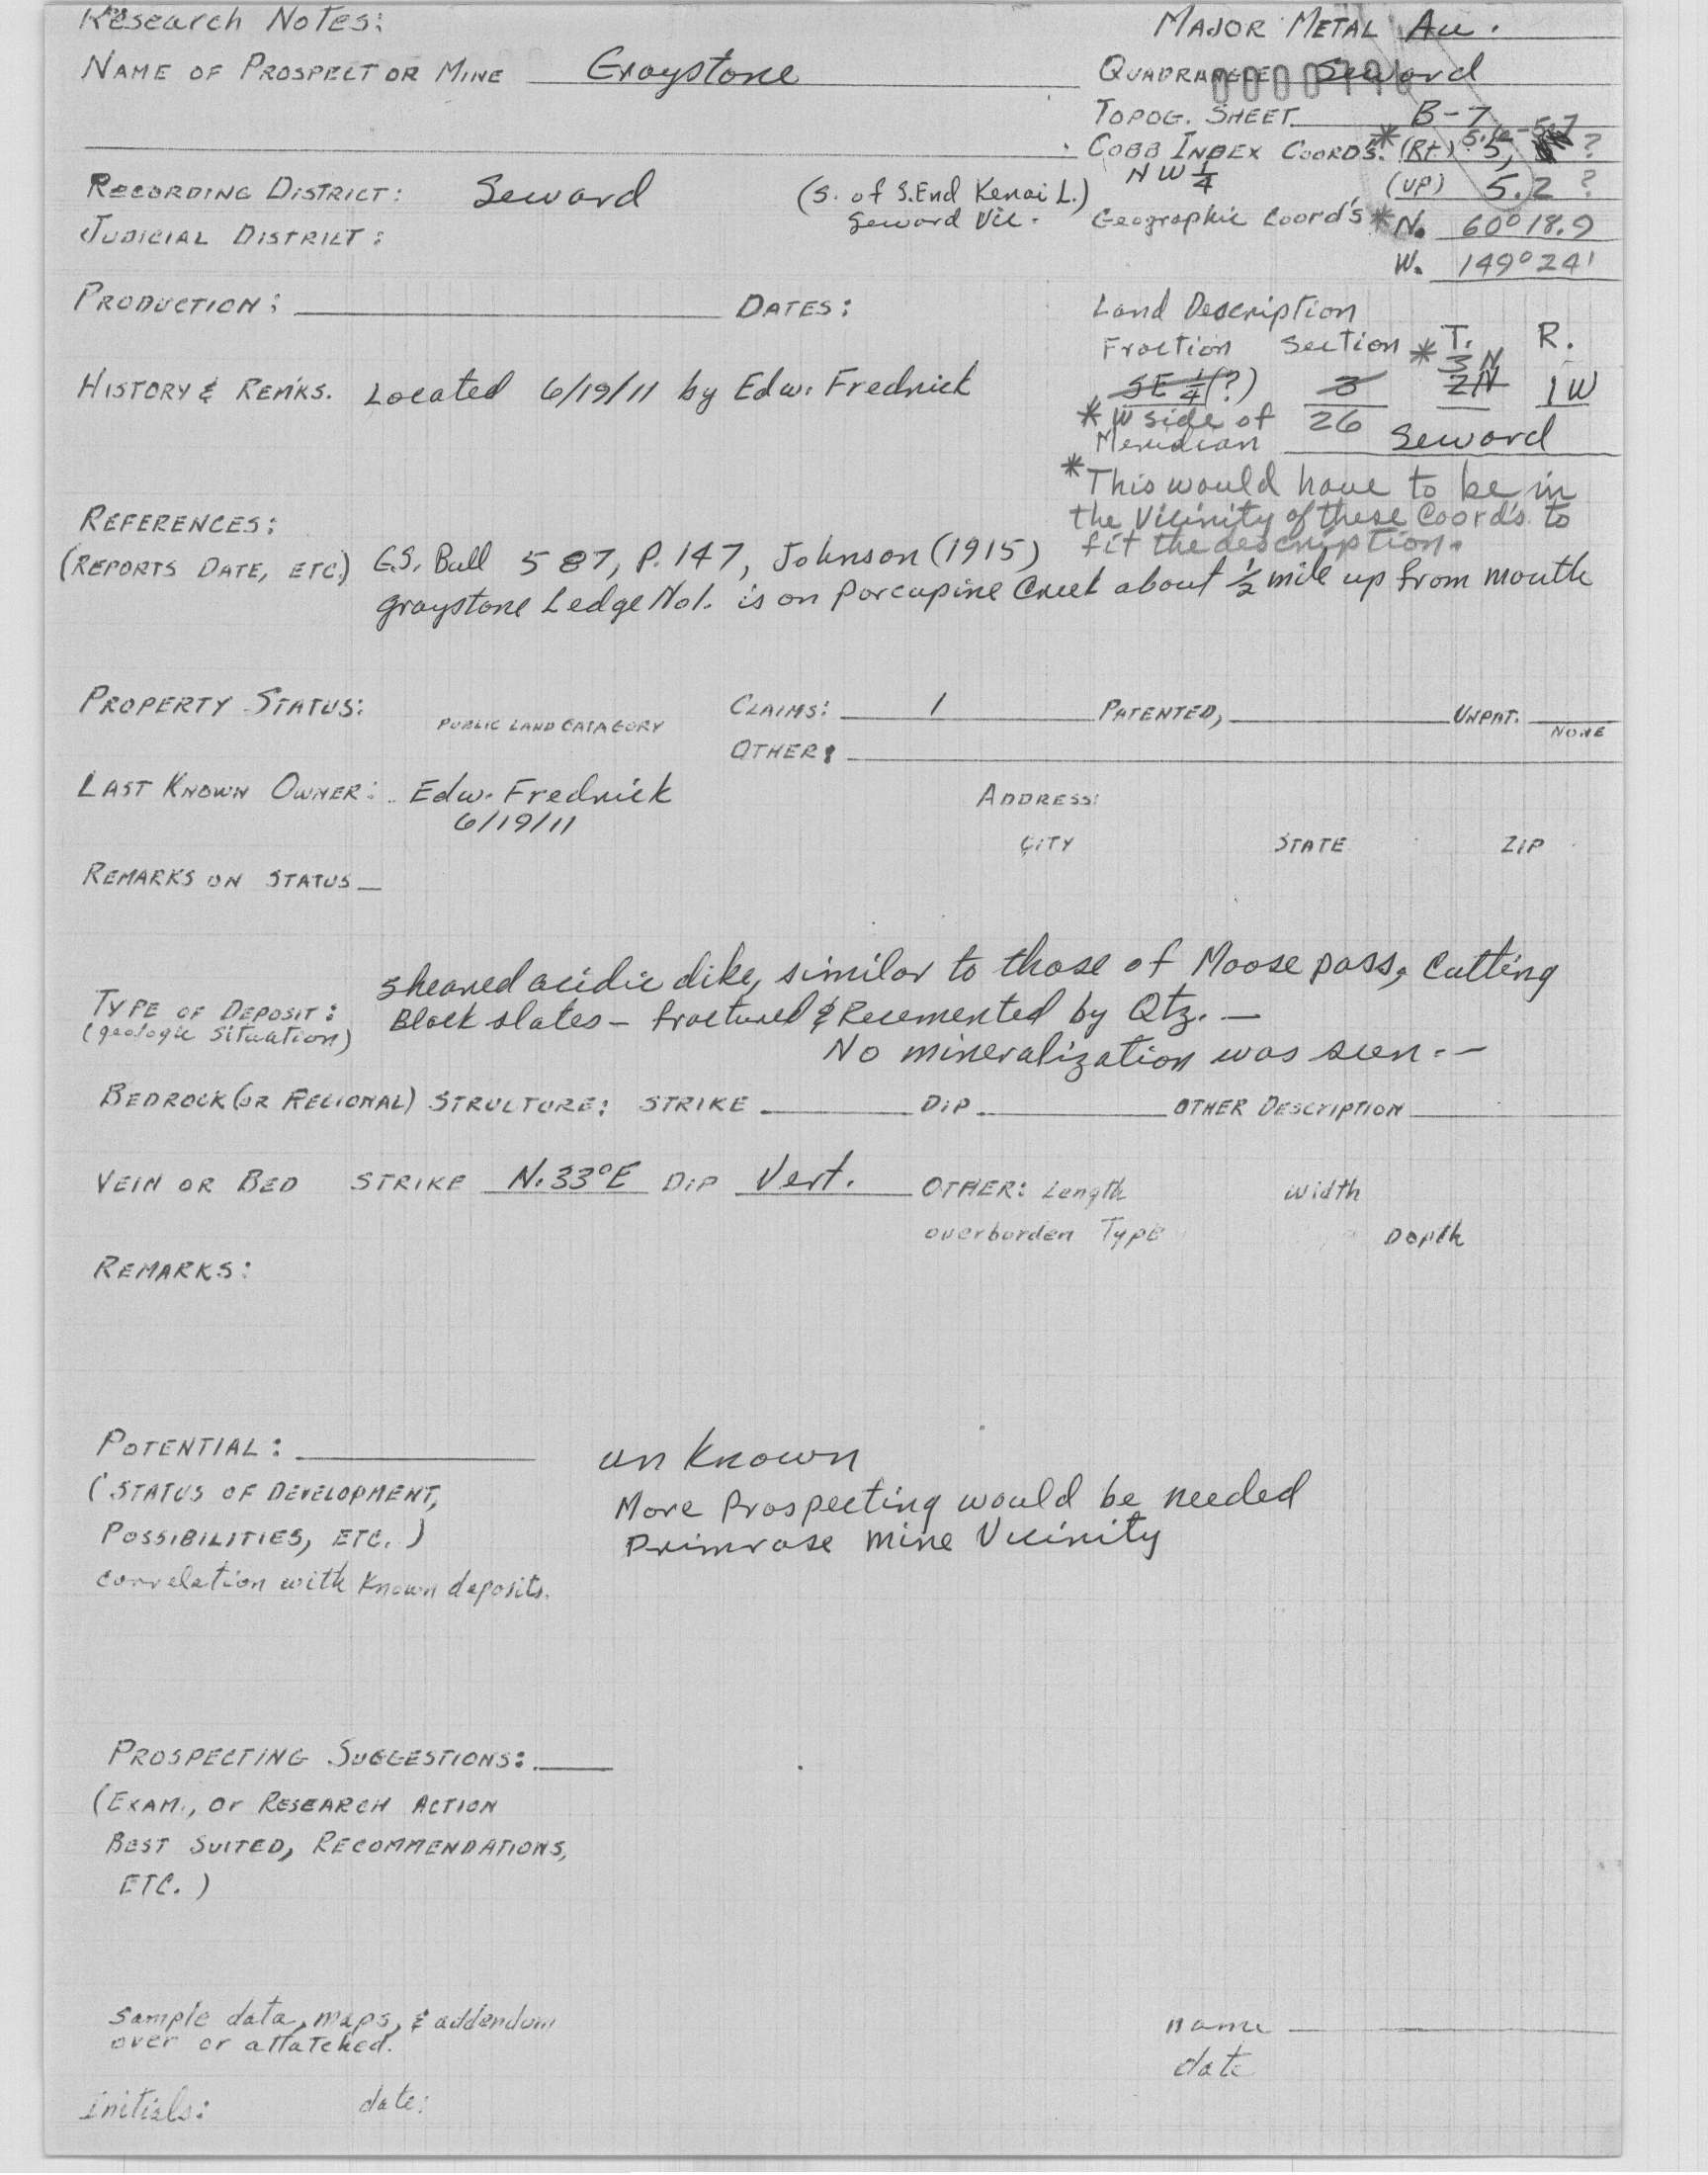 Research Notes:
MAJOR METAL Au.
NAME OF PROSPECT OR MINE Graystone
QUADRANGLE Seward
TOPOG. SHEET B-7
COBB INDEX COORDS. * (Rt) 5, ?
5.6-5.7
NW 1/4
(up) 5.2 ?
RECORDING DISTRICT: Seward (S. of S. End Kenai L.)
Seward Vic.
Geographic Coord's * N. 60° 18.9
JUDICIAL DISTRICT:
W. 149° 24'
PRODUCTION: DATES:
Land Description
Fraction Section * T. R.
3 N
SE 1/4 (?) 3 2N 1W
HISTORY & REMKS. Located 6/19/11 by Edw. Fredrick
* W side of 26
Meridian Seward
* This would have to be in
the Vicinity of these Coord's to
fit the description.
REFERENCES:
(REPORTS DATE, ETC.) G.S. Bull 587, P. 147, Johnson (1915)
graystone Ledge No1. is on Porcupine Creek about 1/2 mile up from mouth
PROPERTY STATUS: CLAIMS: 1 PATENTED, UNPAT.
PUBLIC LAND CATAGORY
NONE
OTHER:
LAST KNOWN OWNER: Edw. Fredrick ADDRESS:
6/19/11
CITY STATE ZIP
REMARKS ON STATUS
TYPE OF DEPOSIT: sheared acidic dike, similar to those of Moose pass, Cutting
(geologic situation) Black slates - fractured & Recemented by Qtz. -
No mineralization was seen. -
BEDROCK (OR REGIONAL) STRUCTURE: STRIKE DIP OTHER DESCRIPTION
VEIN OR BED STRIKE N.33°E DIP Vert. OTHER: Length Width
overborden Type Depth
REMARKS:
POTENTIAL: un Known
(STATUS OF DEVELOPMENT, More Prospecting would be needed
POSSIBILITIES, ETC.) Primrose Mine Vicinity
correlation with Known deposits.
PROSPECTING SUGGESTIONS:
(EXAM., Or RESEARCH ACTION
BEST SUITED, RECOMMENDATIONS,
ETC.)
sample data, maps, & addendum
over or attatched.
name
date
Initials: date: